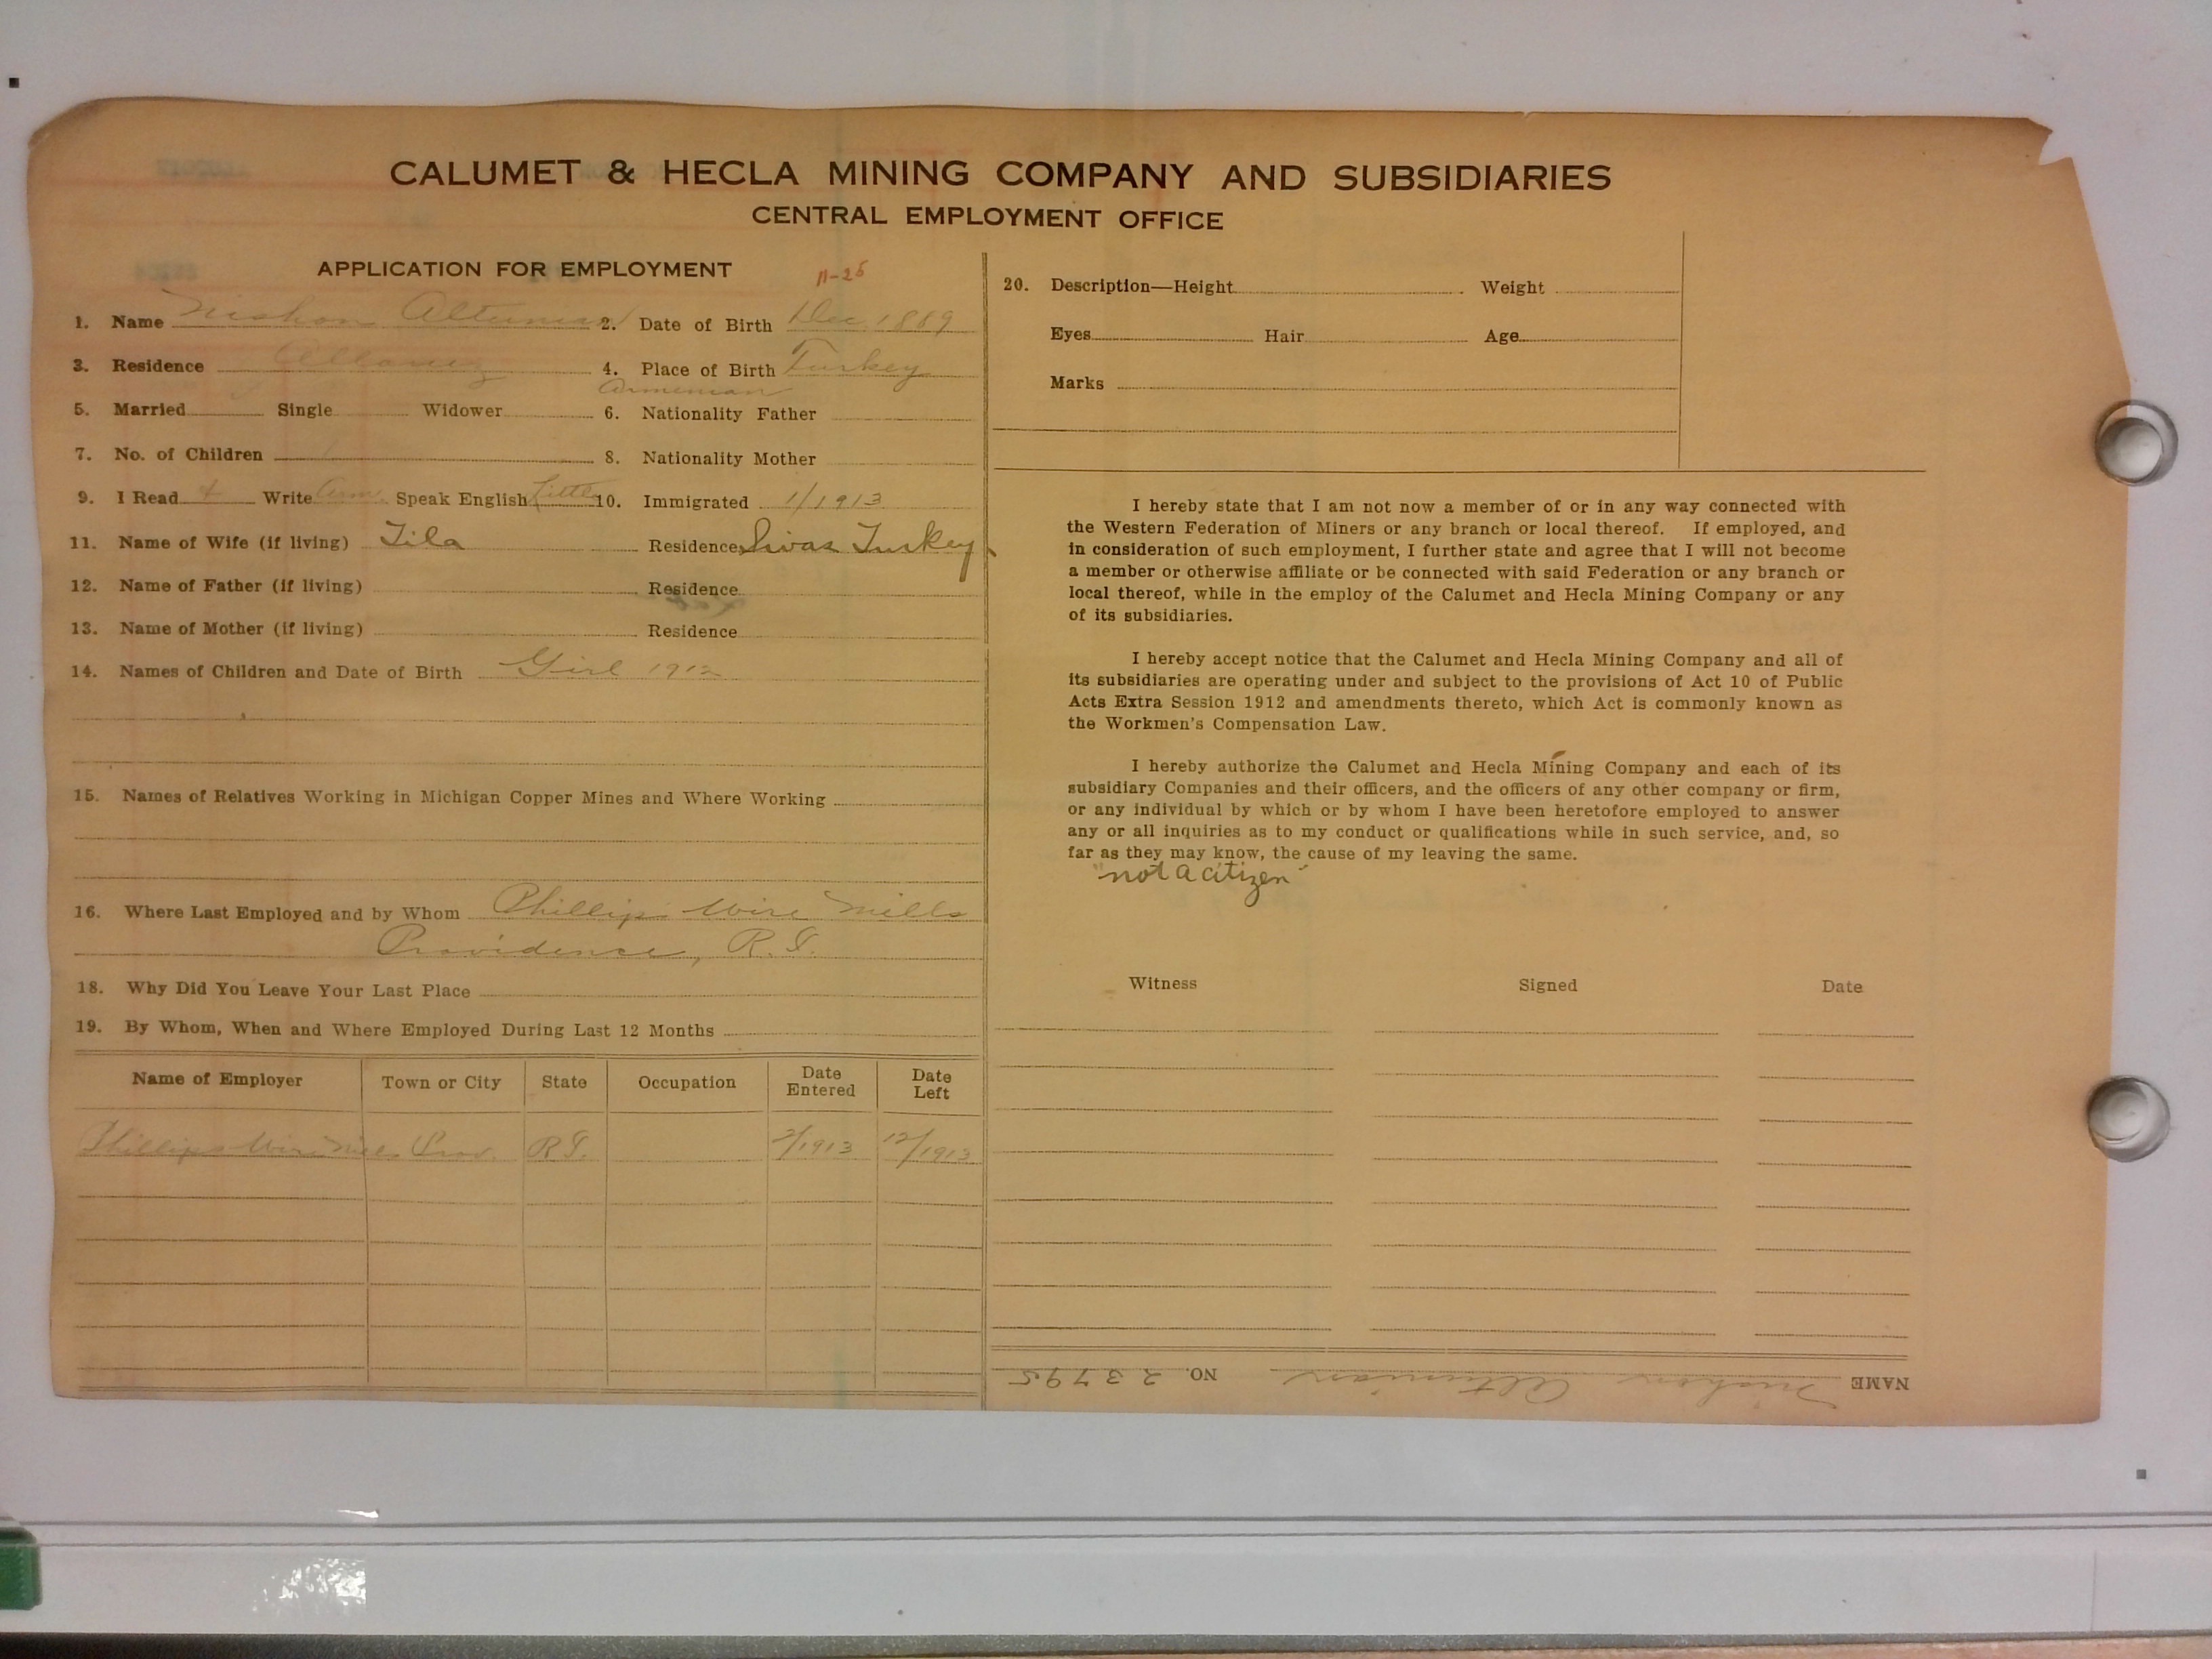 CALUMET & HECLA MINING COMPANY AND SUBSIDIARIES
CENTRAL EMPLOYMENT OFFICE
APPLICATION FOR EMPLOYMENT
1. Name Nishan Altunian 2. Date of Birth Dec. 1889
3. Residence Allouez 4. Place of Birth Turkey
Armenian
5. Married Single Widower 6. Nationality Father
7. No. of Children 1 8. Nationality Mother
9. I Read & Write Arm. Speak English Little 10. Immigrated 1/1913
11. Name of Wife (if living) Tila Residence Sivas Turkey
12. Name of Father (if living) Residence
13. Name of Mother (if living) Residence
14. Names of Children and Date of Birth Girl 1912
15. Names of Relatives Working in Michigan Copper Mines and Where Working
16. Where Last Employed and by Whom Phillips Wire Mills
Providence, R.I.
18. Why Did You Leave Your Last Place
19. By Whom, When and Where Employed During Last 12 Months
Name of Employer Town or City State Occupation Date Entered Date Left
Phillips Wire Mills Prov. R.I. 2/1913 12/1913
20. Description—Height Weight
Eyes Hair Age
Marks
I hereby state that I am not now a member of or in any way connected with
the Western Federation of Miners or any branch or local thereof. If employed, and
in consideration of such employment, I further state and agree that I will not become
a member or otherwise affiliate or be connected with said Federation or any branch or
local thereof, while in the employ of the Calumet and Hecla Mining Company or any
of its subsidiaries.
I hereby accept notice that the Calumet and Hecla Mining Company and all of
its subsidiaries are operating under and subject to the provisions of Act 10 of Public
Acts Extra Session 1912 and amendments thereto, which Act is commonly known as
the Workmen's Compensation Law.
I hereby authorize the Calumet and Hecla Mining Company and each of its
subsidiary Companies and their officers, and the officers of any other company or firm,
or any individual by which or by whom I have been heretofore employed to answer
any or all inquiries as to my conduct or qualifications while in such service, and, so
far as they may know, the cause of my leaving the same.
"not a citizen"
Witness Signed Date
NAME Nishan Altunian NO. 23795